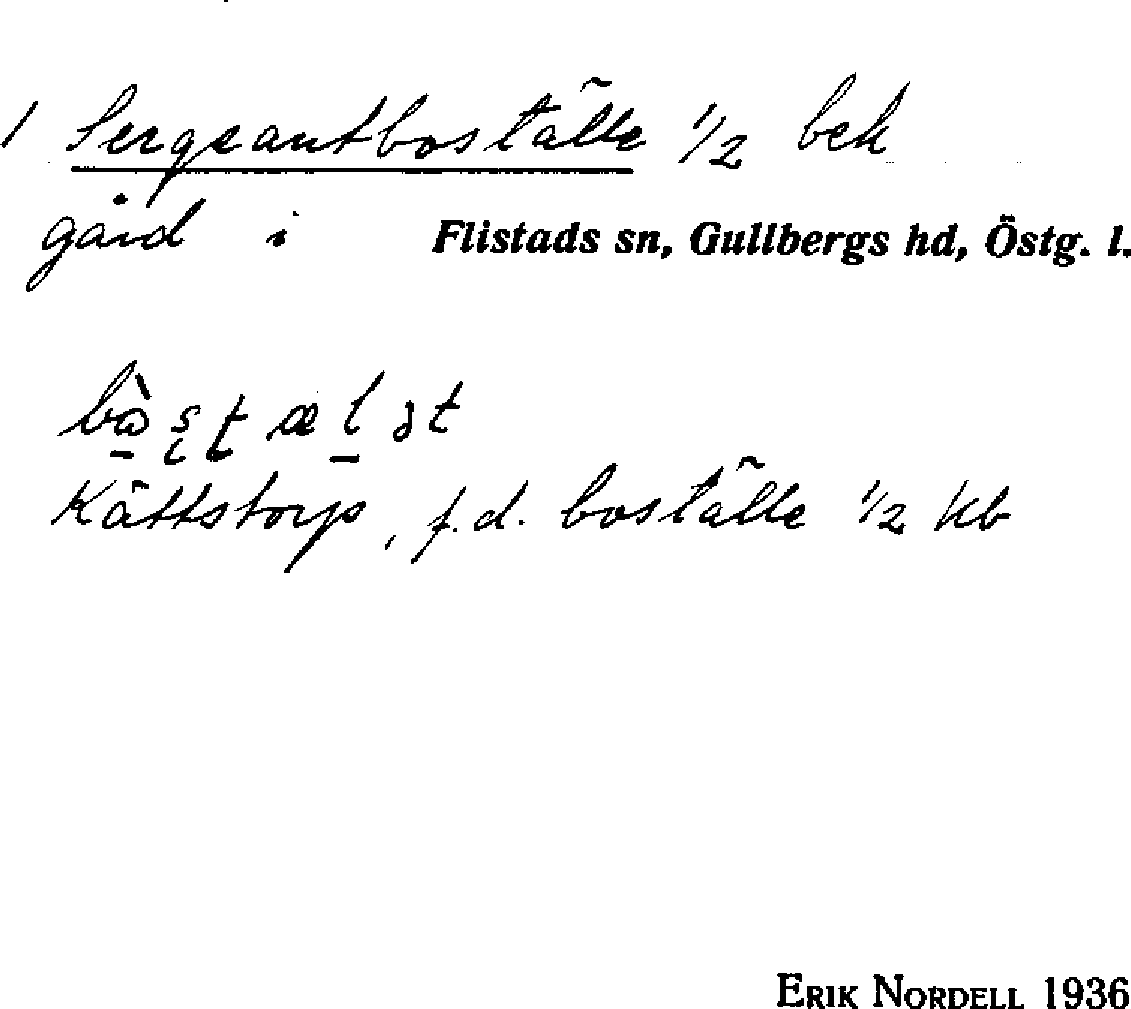 1 Sergeantboställe 1/2 bek
gård i Flistads sn, Gullbergs hd, Östg. l.
Kättstorp, f.d. boställe 1/2 kb
ERIK NORDELL 1936